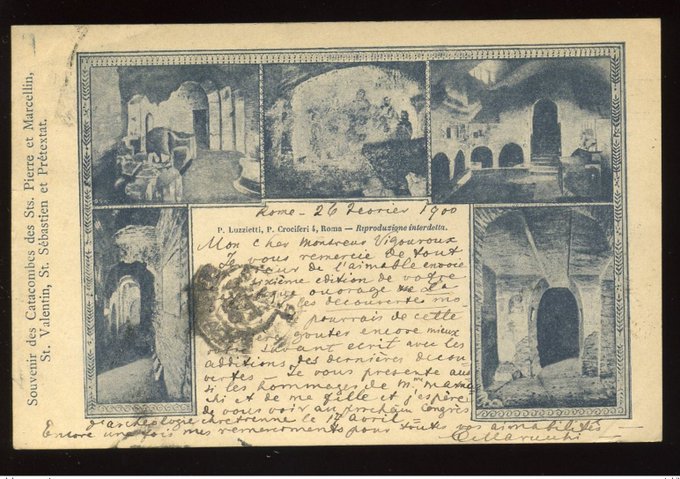 Souvenir des Catacombes des Sts. Pierre et Marcellin,
St. Valentin, St. Sébastien et Prétextat.
Rome - 26 Fevrier 1900
P. Luzzietti, P. Crociferi 4, Roma — Riproduzione interdetta.
Mon cher Monsieur Vigouroux
Je vous remercie de tout
coeur de l'aimable envoie
sixième edition de votre
ouvrage "La
les decouvertes mo
pourrais de cette
gouter encore mieux
savant ecrit avec les
additions des dernières decou
vertes - Je vous presente aus
si les hommages de Mme Maruc
chi et de ma fille et j'espère
de vous voir au prochain Congrès
d'archeologie chretienne le 17 avril -
Encore une fois mes remerciments pour toutes vos aimabilités -
O Marucchi -